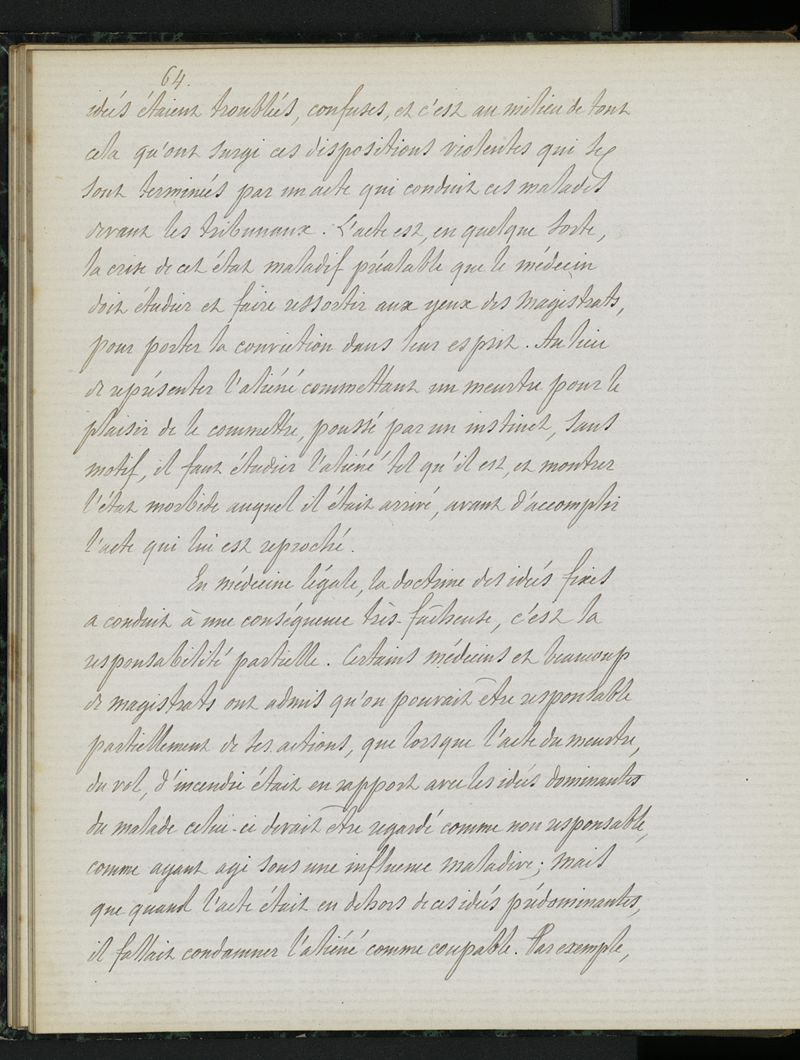 64.
idées étaient troublées, confuses, et c'est au milieu de tout
cela qu'ont surgi ces dispositions violentes qui se
sont terminées par un acte qui conduit ces malades
devant les tribunaux. L'acte est, en quelque sorte,
la crise de cet état maladif préalable que le médecin
doit étudier et faire ressortir aux yeux des magistrats,
pour porter la conviction dans leur esprit. Au lieu
de représenter l'aliéné commettant un meurtre pour le
plaisir de le commettre, poussé par un instinct, sans
motif, il faut étudier l'aliéné tel qu'il est, et montrer
l'état morbide auquel il était arrivé, avant d'accomplir
l'acte qui lui est reproché.
En médecine légale, la doctrine des idées fixes
a conduit à une conséquence très-fâcheuse, c'est la
responsabilité partielle. Certains médecins et beaucoup
de magistrats ont admis qu'on pouvait être responsable
partiellement de ses actions, que lorsque l'acte du meurtre,
du vol, d'incendie était en rapport avec les idées dominantes
du malade celui-ci devait être regardé comme non responsable,
comme ayant agi sous une influence maladive; mais
que quand l'acte était en dehors de ces idées prédominantes,
il fallait condamner l'aliéné comme coupable. Par exemple,